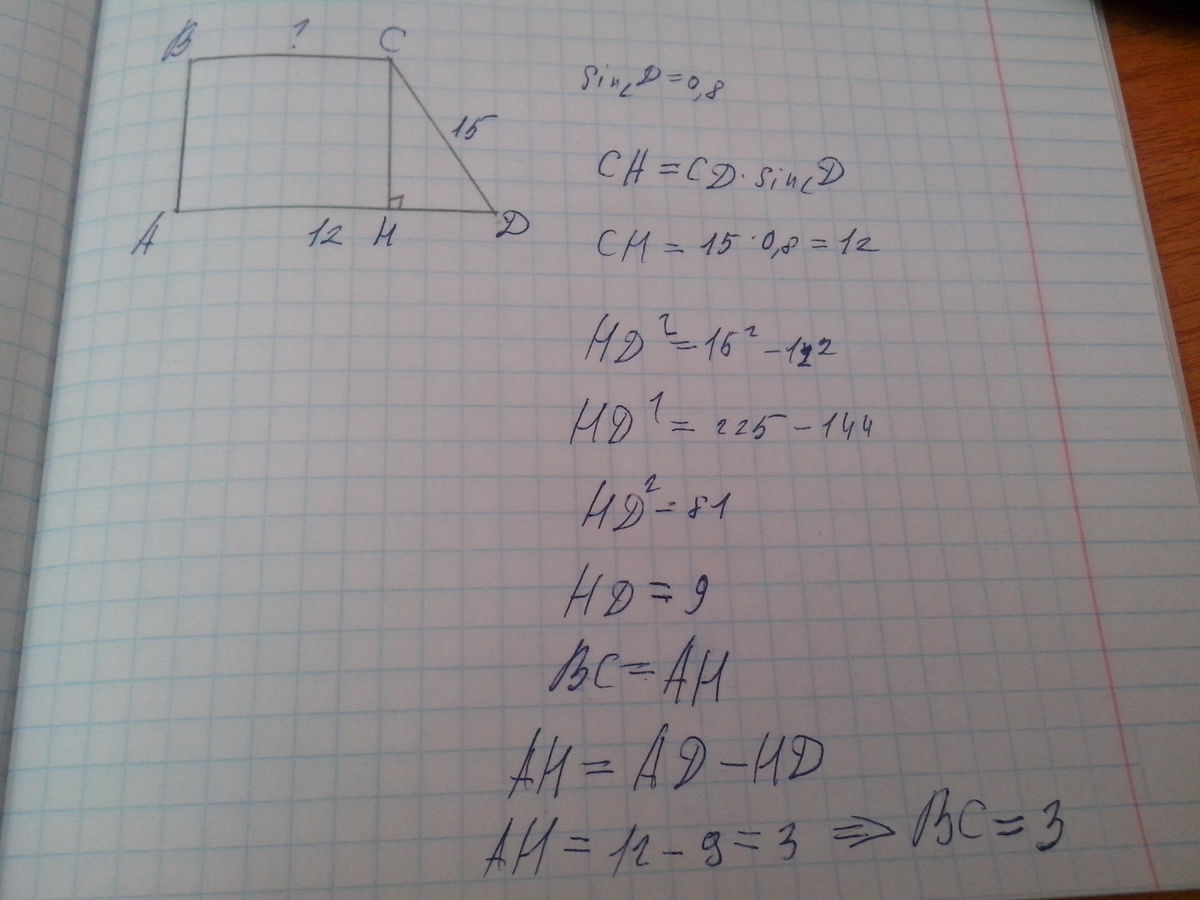 B ? C
15
A 12 H D
sin∠D=0,8
CH=CD·sin∠D
CH=15·0,8=12
HD²=15²-12²
HD²=225-144
HD²=81
HD=9
BC=AH
AH=AD-HD
AH=12-9=3 ⇒ BC=3